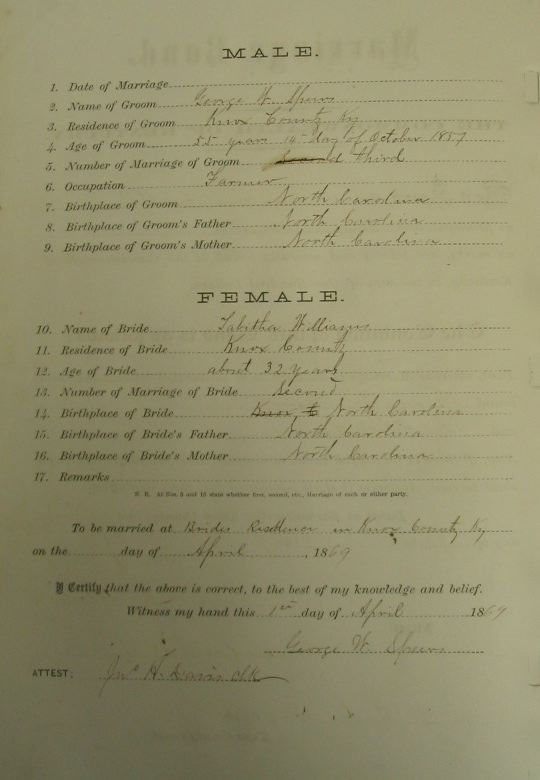 MALE.
1. Date of Marriage
2. Name of Groom George W. Spears
3. Residence of Groom Knox County Ky
4. Age of Groom 55 years 14 day of October
5. Number of Marriage of Groom Second third
6. Occupation Farmer
7. Birthplace of Groom North Carolina
8. Birthplace of Groom's Father North Carolina
9. Birthplace of Groom's Mother North Carolina
FEMALE.
10. Name of Bride Tabitha Williams
11. Residence of Bride Knox County
12. Age of Bride about 32 years
13. Number of Marriage of Bride Second
14. Birthplace of Bride Knox North Carolina
15. Birthplace of Bride's Father North Carolina
16. Birthplace of Bride's Mother North Carolina
17. Remarks
N. B. At Nos. 5 and 13 state whether first, second, etc., Marriage of each or either party.
To be married at Brides Residence in Knox County Ky
on the day of April, 1869
I Certify that the above is correct, to the best of my knowledge and belief.
Witness my hand this 1st day of April 1869
George W. Spears
ATTEST: Jno H. Davis Clk